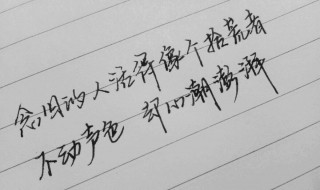 念旧的人活得像个拾荒者
不动声色 却心潮澎湃